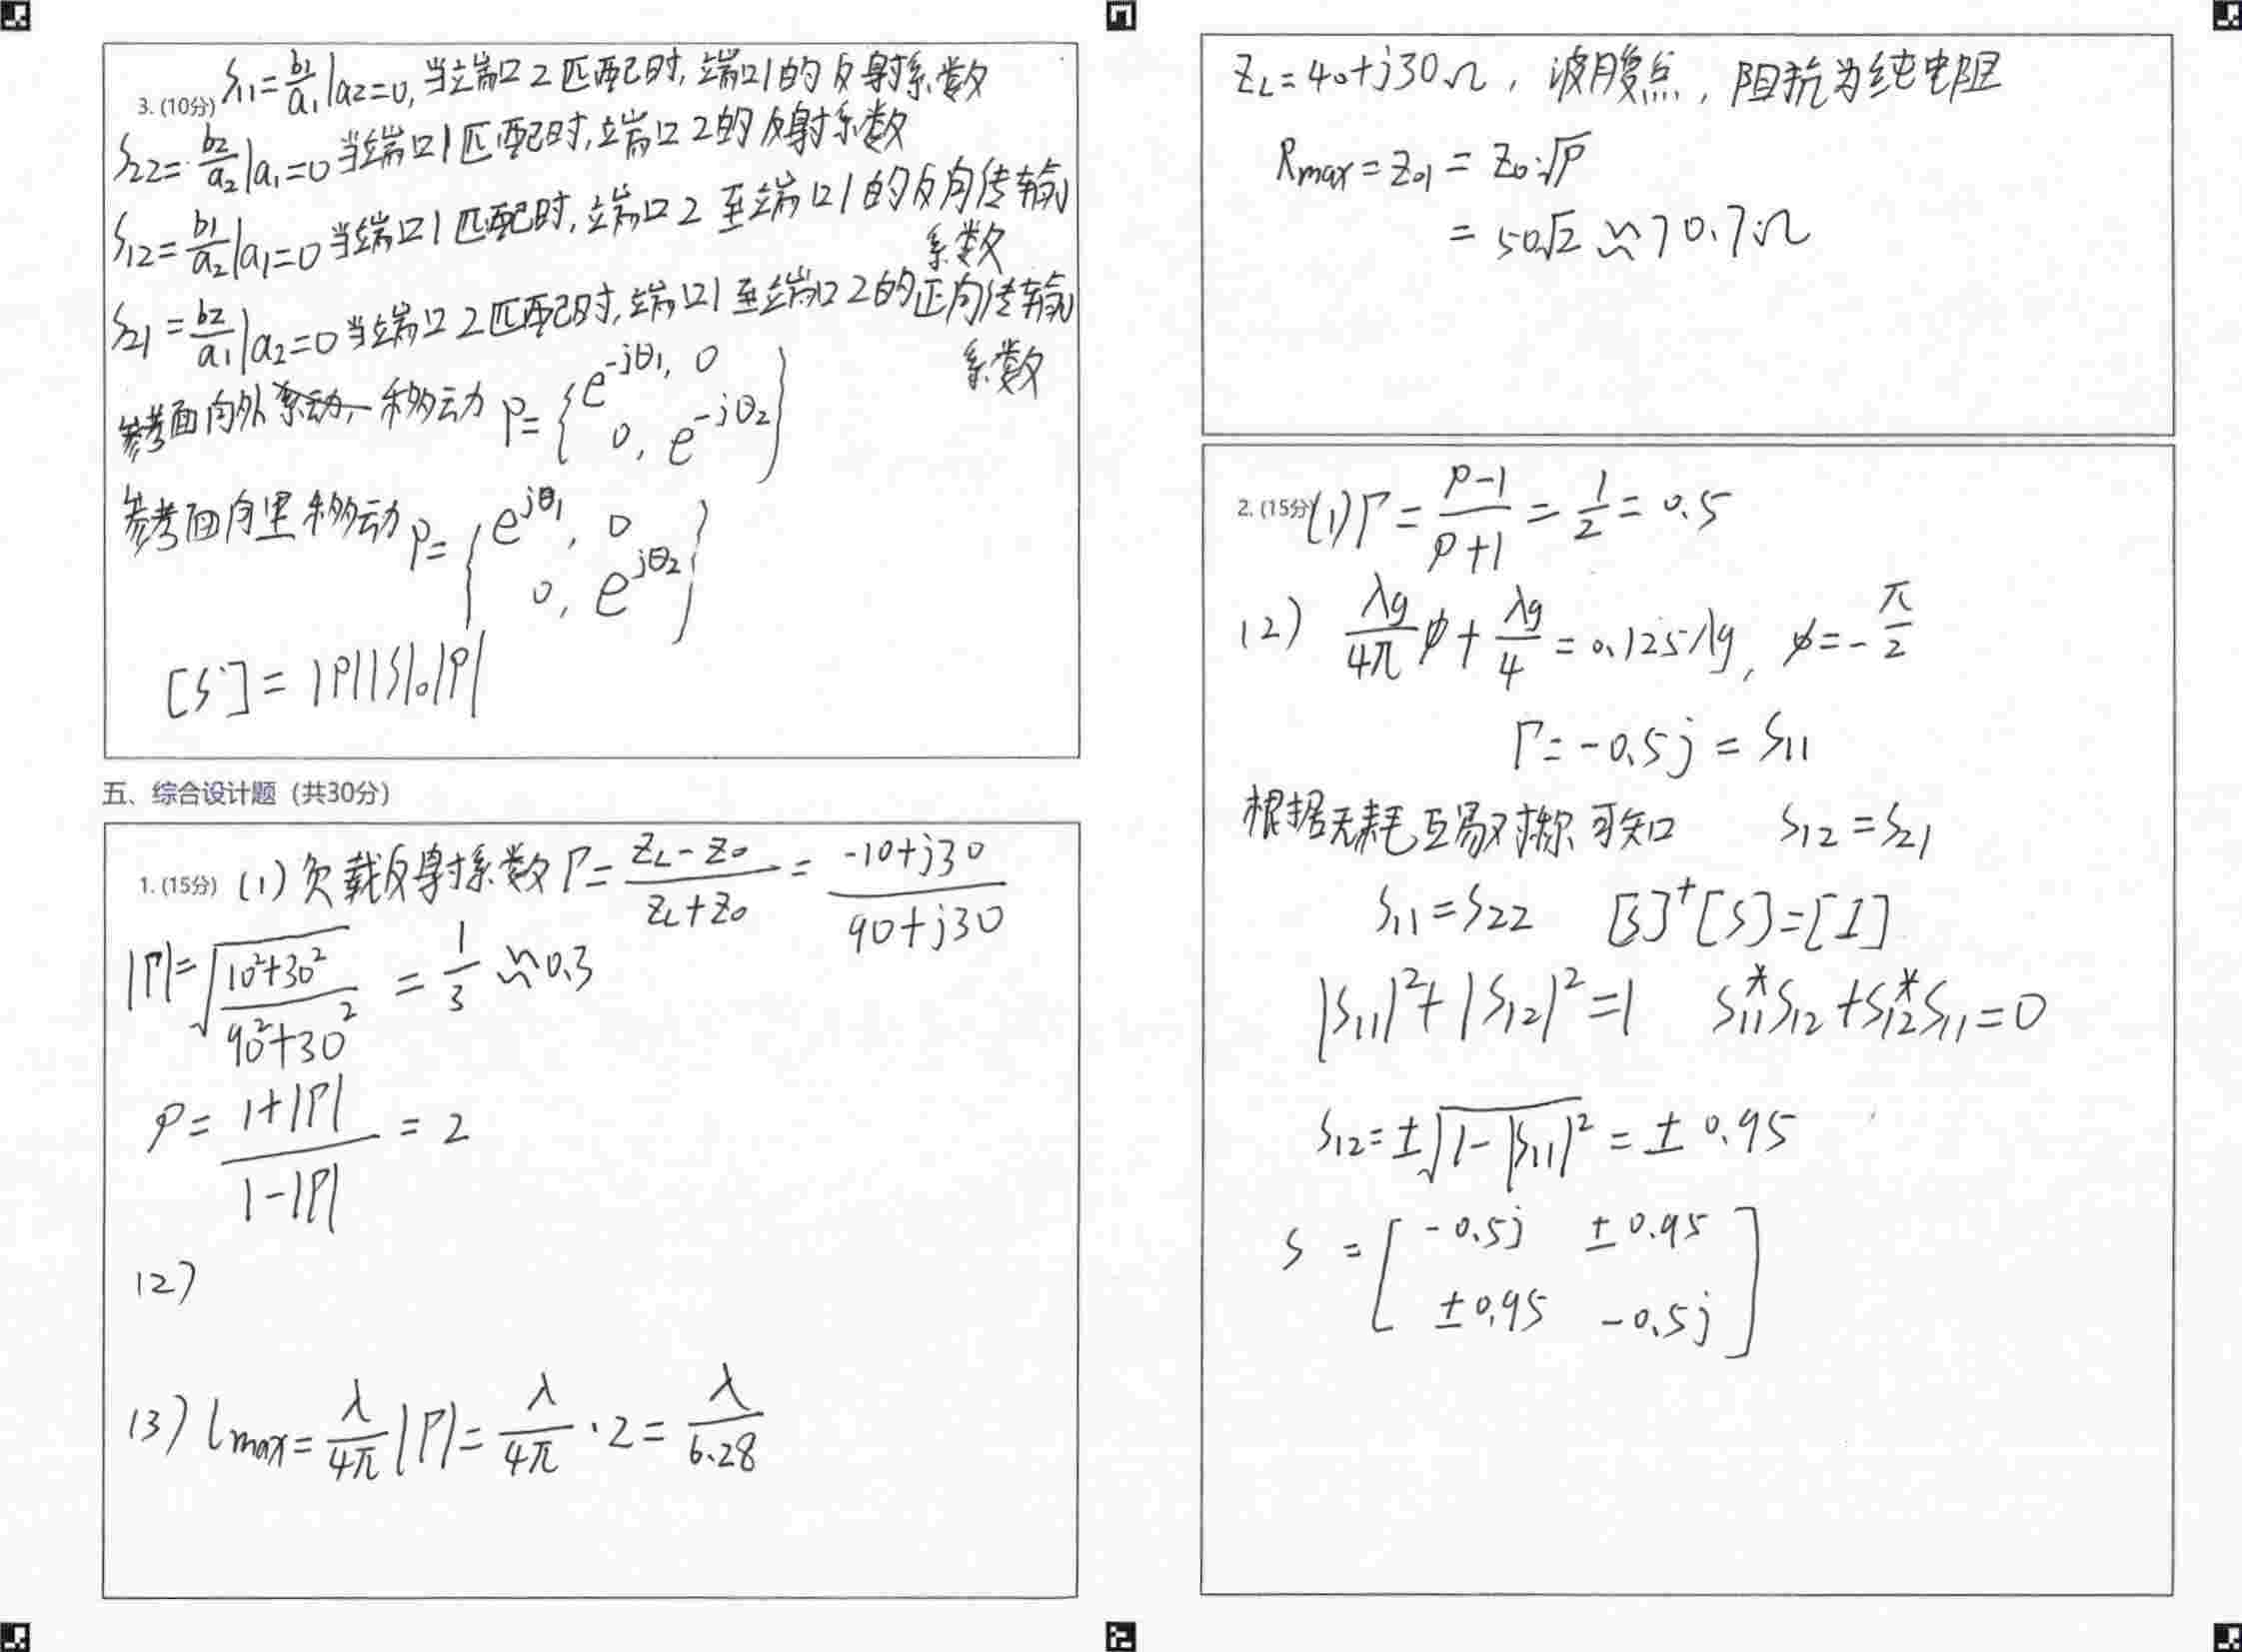 3. (10分) S11=b1/a1|a2=0, 当端口2匹配时, 端口1的反射系数
S22=b2/a2|a1=0 当端口1匹配时, 端口2的反射系数
S12=b1/a2|a1=0 当端口1匹配时, 端口2至端口1的反向传输
系数
S21=b2/a1|a2=0 当端口2匹配时, 端口1至端口2的正向传输
系数
参考面向外移动 P={e^-jθ1, 0
0, e^-jθ2}
参考面向里移动 P={e^jθ1, 0
0, e^jθ2}
[S']=|P||S|0|P|
五、综合设计题（共30分）
1. (15分) (1) 负载反射系数 Γ=(ZL-Z0)/(ZL+Z0)=(-10+j30)/(90+j30)
|Γ|=√((10²+30²)/(90²+30²))=1/3≈0.3
ρ=(1+|Γ|)/(1-|Γ|)=2
(2)
(3) lmax=λ/4π|Γ|=λ/4π·2=λ/6.28
ZL=40+j30Ω, 波腹点, 阻抗为纯电阻
Rmax=Z01=Z0·√ρ
=50√2≈70.7Ω
2. (15分) (1) Γ=(ρ-1)/(ρ+1)=1/2=0.5
(2) λg/4π φ+λg/4=0.125λg, φ=-π/2
Γ=-0.5j=S11
根据无耗互易对称可知 S12=S21
S11=S22 [S]⁺[S]=[I]
|S11|²+|S12|²=1 S11*S12+S12*S11=0
S12=±√(1-|S11|²)=±0.95
S=[-0.5j ±0.95
±0.95 -0.5j]